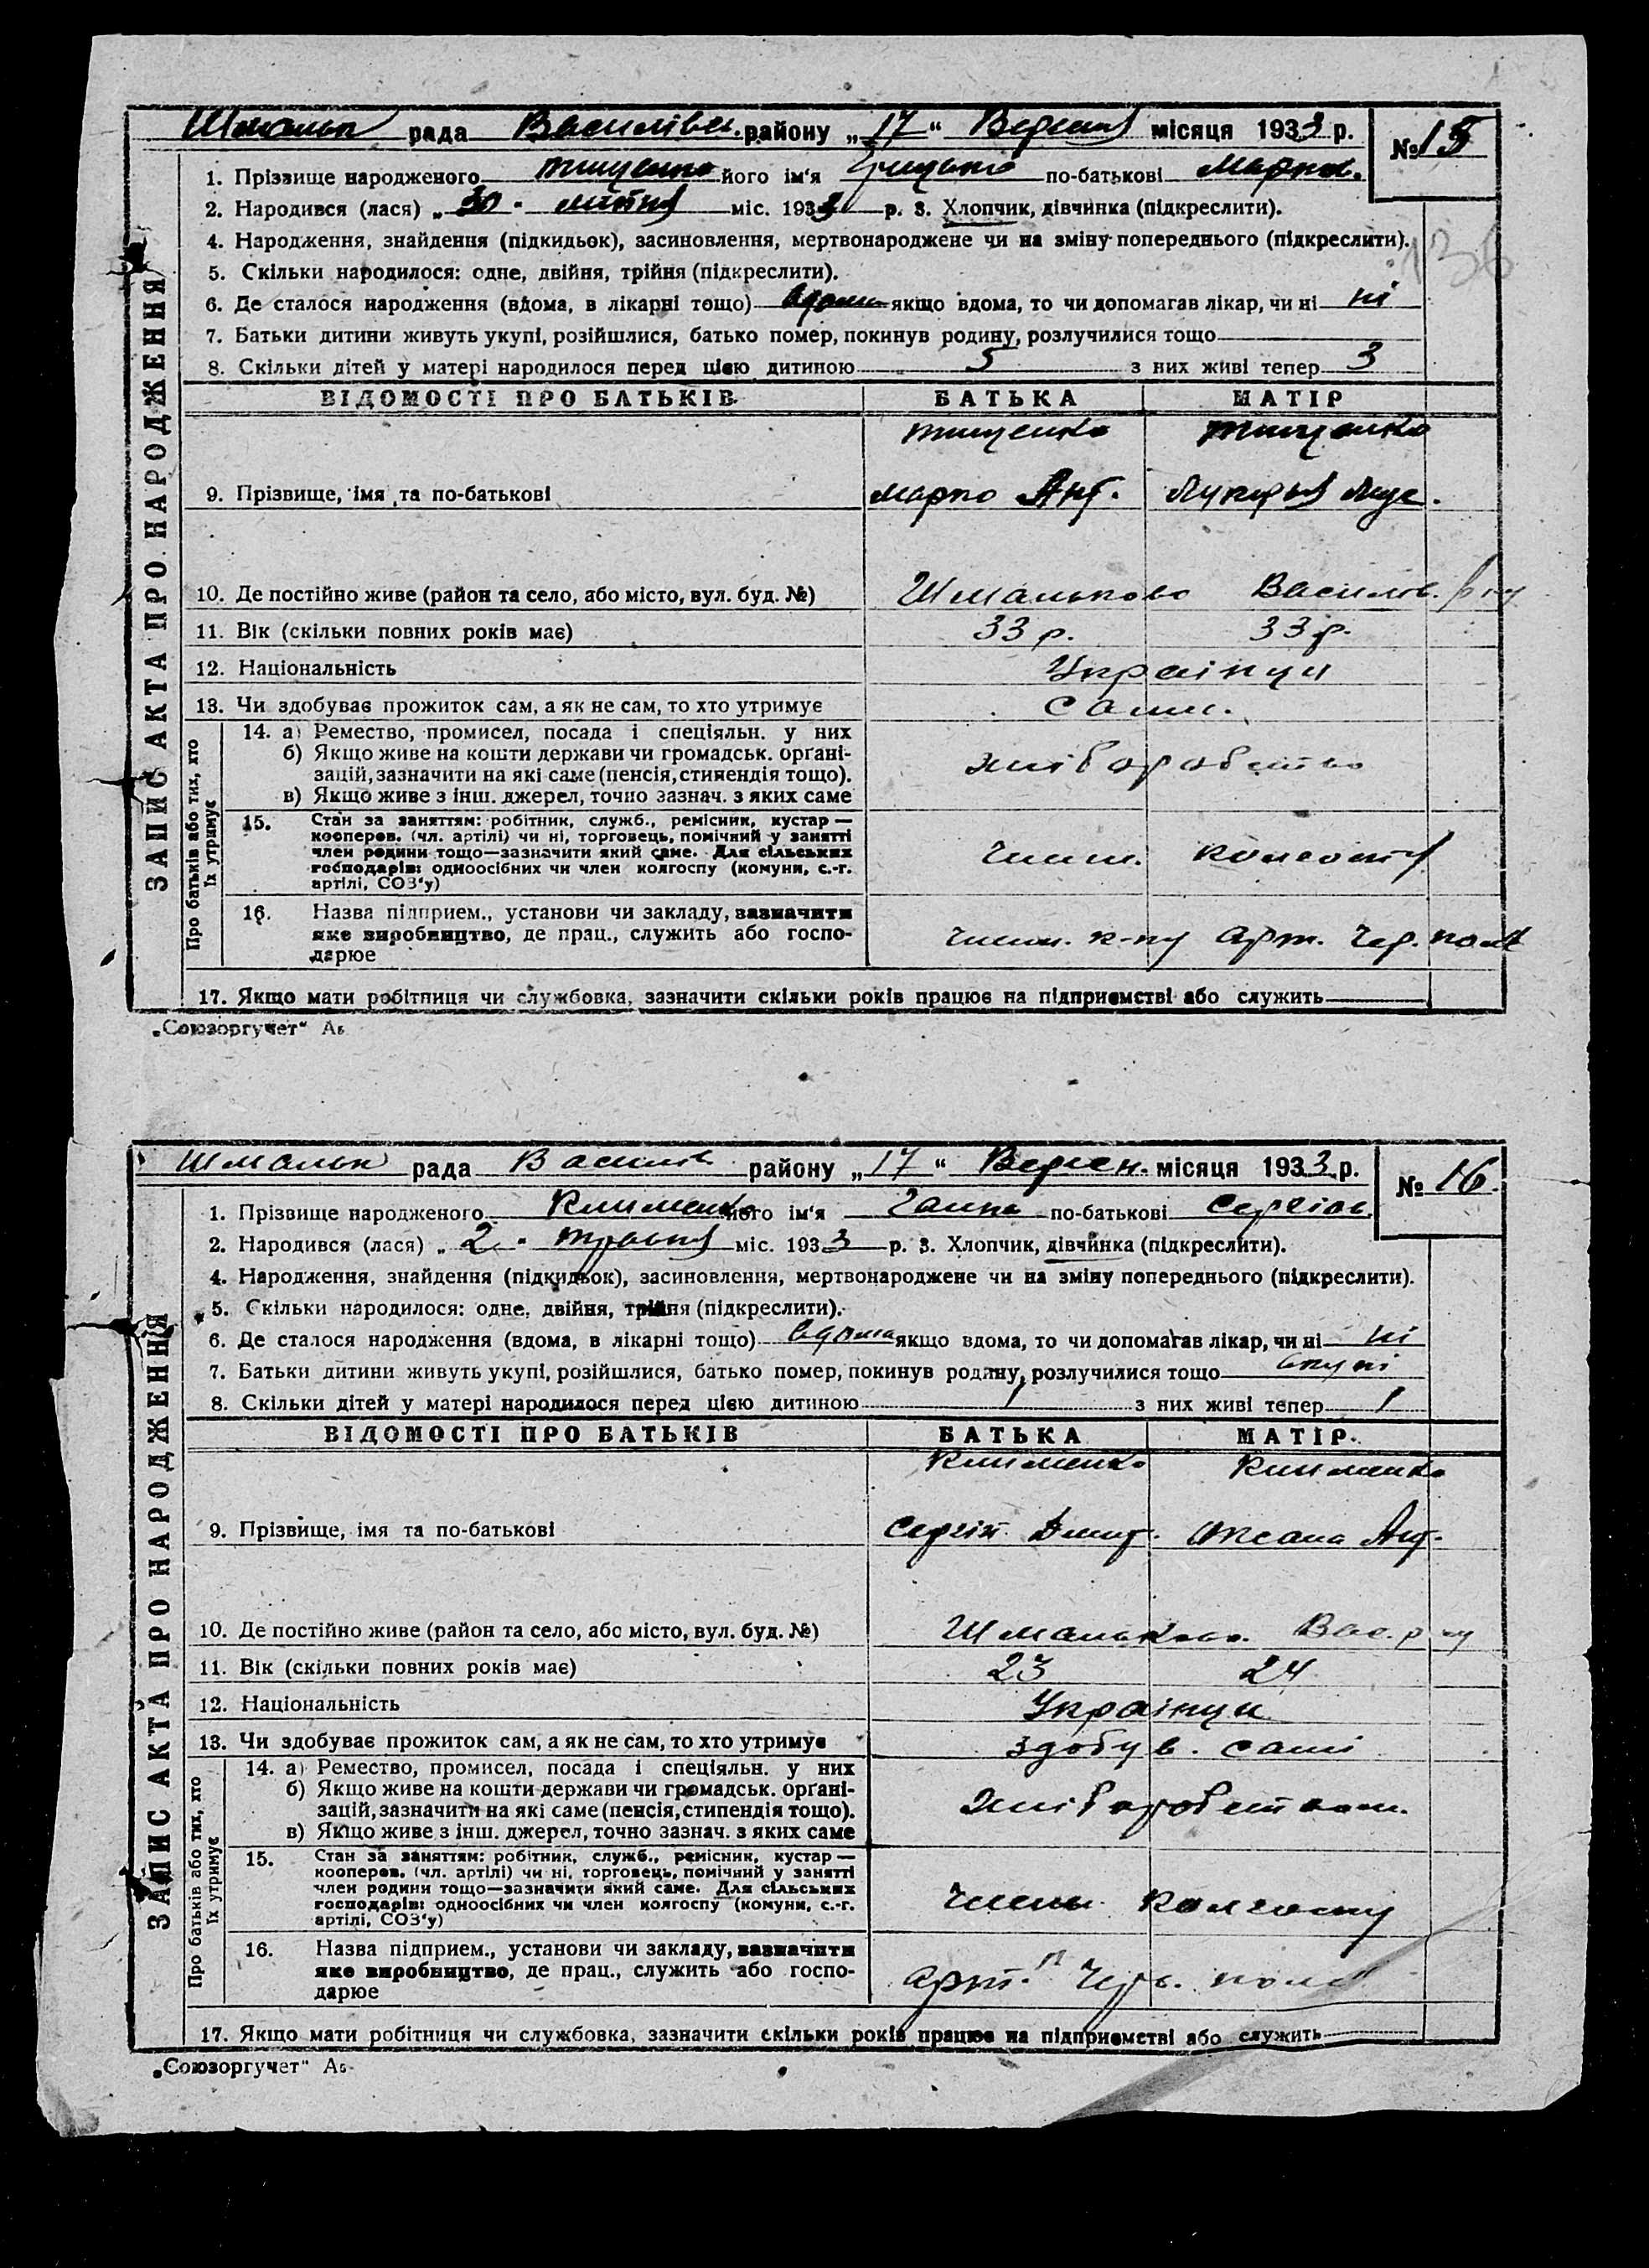 Шмальк рада Василівск. району „17“ Вересня місяця 1933 р. № 15
ЗАПИС АКТА ПРО НАРОДЖЕННЯ
1. Прізвище народженого Тищенко його ім'я Грицько по-батькові Марков.
2. Народився (лася) „30“ липня міс. 1933 р. 3. Хлопчик, дівчинка (підкреслити).
4. Народження, знайдення (підкидьок), засиновлення, мертвонароджене чи на зміну попереднього (підкреслити).
136
5. Скільки народилося: одне, двійня, трійня (підкреслити).
6. Де сталося народження (вдома, в лікарні тощо) вдома якщо вдома, то чи допомагав лікар, чи ні ні
7. Батьки дитини живуть укупі, розійшлися, батько помер, покинув родину, розлучилися тощо
8. Скільки дітей у матері народилося перед цією дитиною 5 з них живі тепер 3
ВІДОМОСТІ ПРО БАТЬКІВ БАТЬКА МАТІР
Тищенко Тищенко
9. Прізвище, імя та по-батькові Марко Ант. Лукерья
10. Де постійно живе (район та село, або місто, вул. буд. №) Шмальково Василів. р-ну
11. Вік (скільки повних років має) 33 р. 33 р.
12. Національність Українци
13. Чи здобуває прожиток сам, а як не сам, то хто утримує сами.
Про батьків або тих, хто їх утримує
14. а) Ремество, промисел, посада і спеціяльн. у них
б) Якщо живе на кошти держави чи громадськ. органі-
зацій, зазначити на які саме (пенсія, стипендія тощо). хліборобство
в) Якщо живе з інш. джерел, точно зазнач. з яких саме
15. Стан за заняттям: робітник, служб., ремісник, кустар —
кооперов. (чл. артілі) чи ні, торговець, помічний у занятті
член родини тощо—зазначити який саме. Для сільських член. колгоспу
господарів: одноосібних чи член колгоспу (комуни, с.-г.
артілі, СОЗ'у)
16. Назва підприєм., установи чи закладу, зазначити
яке виробництво, де прац., служить або госпо- член. к-пу арт. Чер. поля
дарює
17. Якщо мати робітниця чи службовка, зазначити скільки років працює на підприємстві або служить
„Союзоргучет“ Аб
Шмальк рада Василів. району „17“ Вересн. місяця 1933 р. № 16
ЗАПИС АКТА ПРО НАРОДЖЕННЯ
1. Прізвище народженого Клименко його ім'я Ганна по-батькові Сергіов.
2. Народився (лася) „2“ травня міс. 1933 р. 3. Хлопчик, дівчинка (підкреслити).
4. Народження, знайдення (підкидьок), засиновлення, мертвонароджене чи на зміну попереднього (підкреслити).
5. Скільки народилося: одне, двійня, трійня (підкреслити).
6. Де сталося народження (вдома, в лікарні тощо) вдома якщо вдома, то чи допомагав лікар, чи ні ні
7. Батьки дитини живуть укупі, розійшлися, батько помер, покинув родину, розлучилися тощо вкупі
8. Скільки дітей у матері народилося перед цією дитиною 1 з них живі тепер 1
ВІДОМОСТІ ПРО БАТЬКІВ БАТЬКА МАТІР
Клименко Клименко
9. Прізвище, імя та по-батькові Сергій Дмит. Оксана Ант.
10. Де постійно живе (район та село, або місто, вул. буд. №) Шмальково. Вас. р-ну
11. Вік (скільки повних років має) 23 24
12. Національність Українци
13. Чи здобуває прожиток сам, а як не сам, то хто утримує здобув. самі
Про батьків або тих, хто їх утримує
14. а) Ремество, промисел, посада і спеціяльн. у них
б) Якщо живе на кошти держави чи громадськ. органі-
зацій, зазначити на які саме (пенсія, стипендія тощо). хліборобством.
в) Якщо живе з інш. джерел, точно зазнач. з яких саме
15. Стан за заняттям: робітник, служб., ремісник, кустар —
кооперов. (чл. артілі) чи ні, торговець, помічний у занятті
член родини тощо—зазначити який саме. Для сільських
господарів: одноосібних чи член колгоспу (комуни, с.-г. члены колгоспу
артілі, СОЗ'у)
16. Назва підприєм., установи чи закладу, зазначити
яке виробництво, де прац., служить або госпо- арт. "Черв. поля"
дарює
17. Якщо мати робітниця чи службовка, зазначити скільки років працює на підприємстві або служить
„Союзоргучет“ Аб